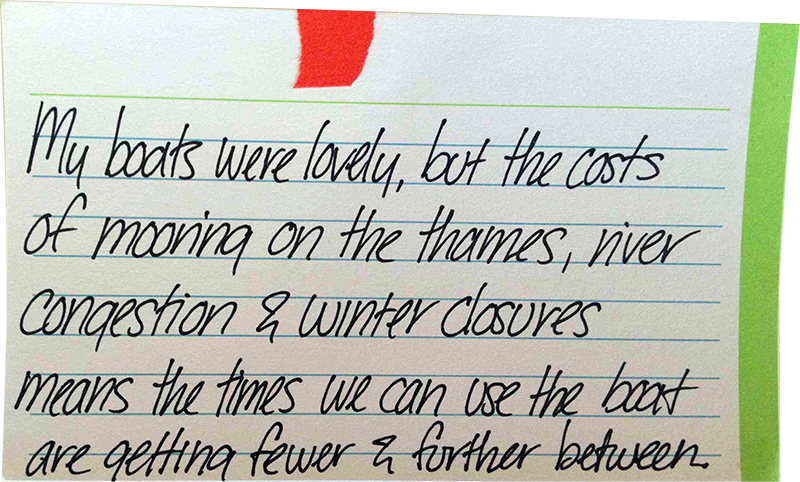 My boats were lovely, but the costs
of mooring on the thames, river
congestion & winter closures
means the times we can use the boat
are getting fewer & further between.